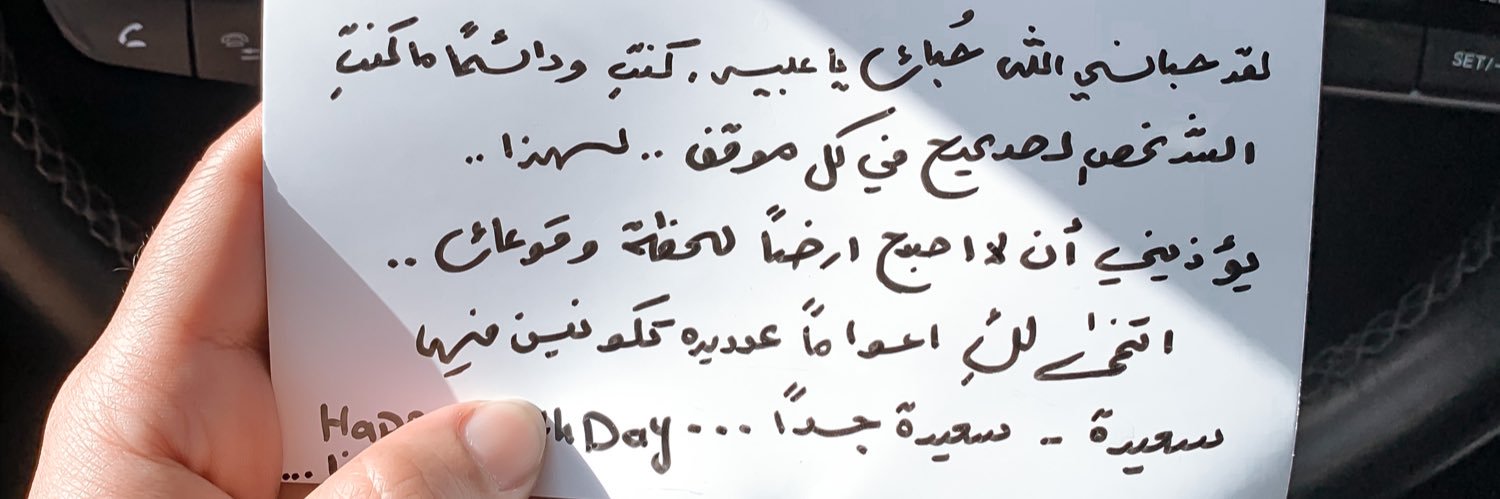 لقد حباني الله حُبك يا عبير. كنتِ ودائمًا ما كنتِ
الشخص لصحيح في كل موقف .. لهذا ..
يؤذيني أن لا اصبح ارضاً للحظة وقوعك ..
اتمنى لكِ اعواماً عديده تكونين فيها
سعيدة - سعيدة جداً ... Day
SET/-